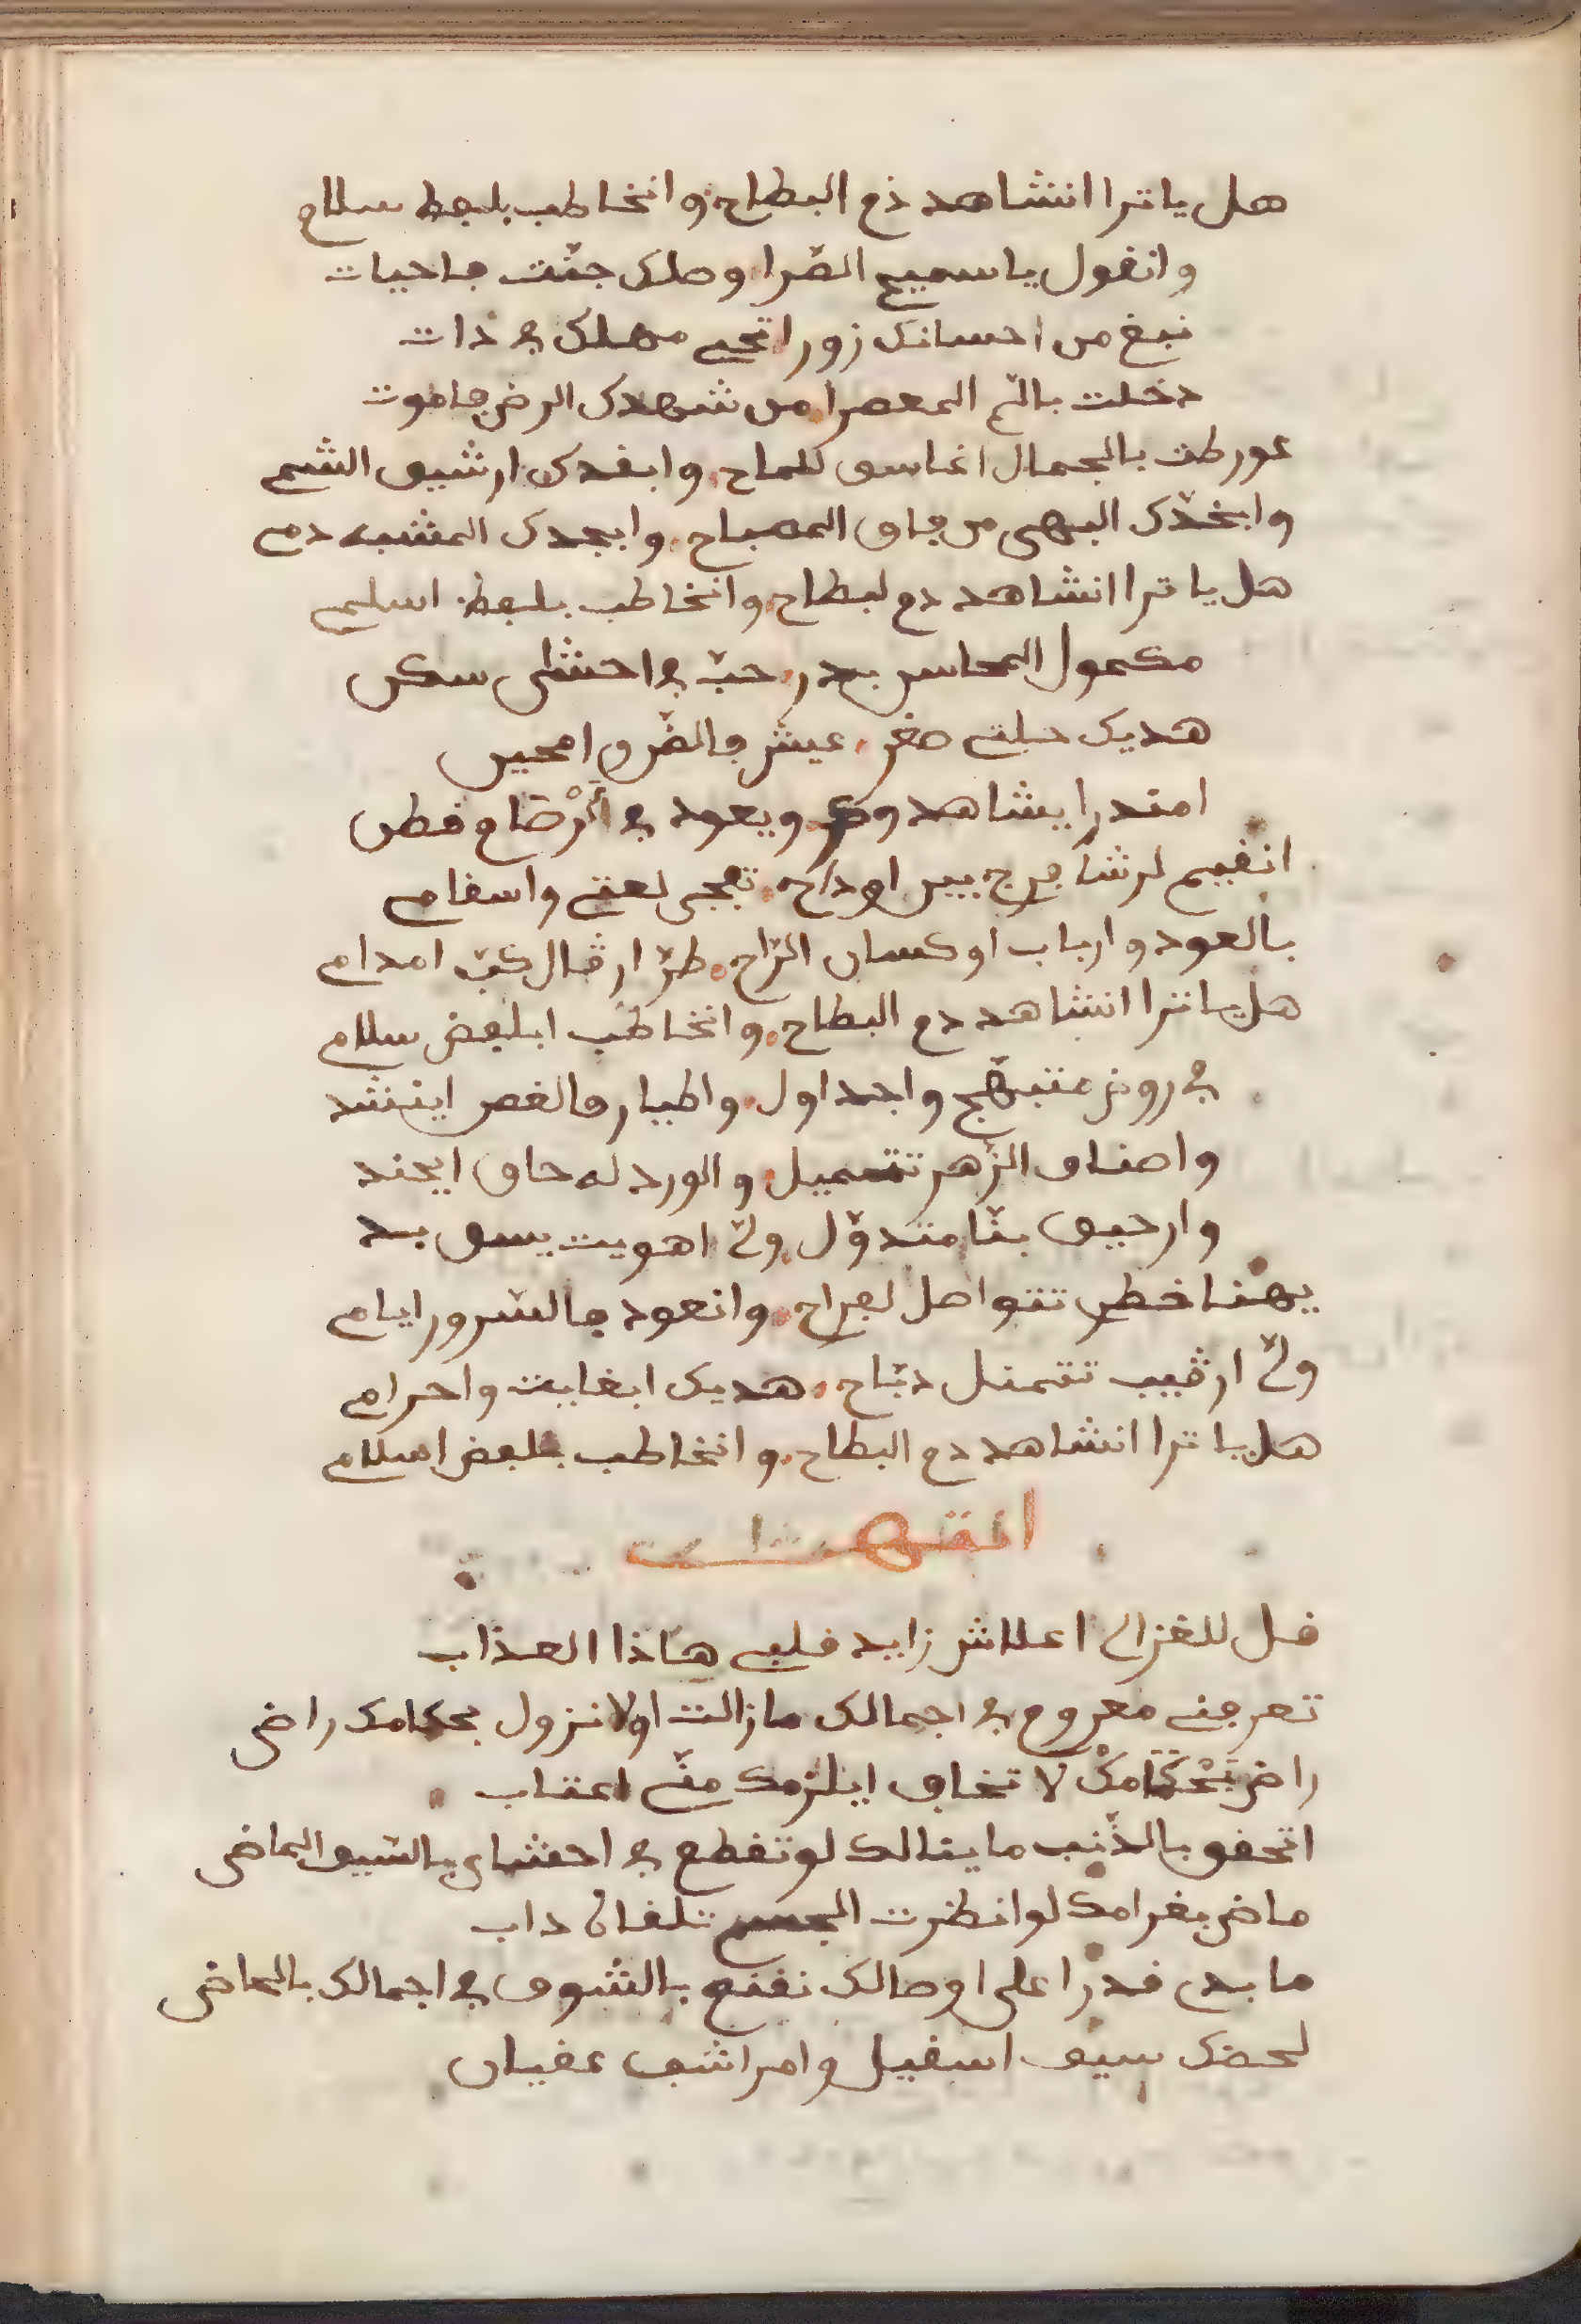 هل يا ترا انشاهد ذم البطاح وانخاطب بلفظ سلام
وانقول يا سميح الصرا وصلك جنت فاحيات
نبغ من احسانك زورا تحي مهلك في ذات
دخلت بالم المعصرا من شهدك الرض فاموت
عورطت بالجمال اغاسق للماح وابقدك ارشيق الشم
وابخدك البهي من فاق المصباح وابجدك المشبه دمي
هل يا ترا انشاهد دم لبطاح وانخاطب بلفظ اسليم
مكمول المحاسن بدر حب في احشاي سكن
هديك حلت صغر عيش فالضر وامحين
امندرا يشاهد ويعود في أرضاع قطن
انقيم لرشا فرج بين اوداح تفجي لعتي واسقامي
بالعود وارباب اوكسان الراح طر ارفال كب امدام
هل يا ترا انشاهد دم البطاح وانخاطب ابلفض سلام
في روض متبهج واجداول واطيار فالغصن اينشد
واصناف الزهر تتميل والورد له حاف ايجند
وارحيق بنا متدول ولي اهويت يسق بيد
يهنا خطر تتواصل لفراح وانعود فالسرور ايام
ولي ارقيب تتمثل دباح هديك ابغايت واحرام
هل يا ترا انشاهد دم البطاح وانخاطب بلفض اسلام
انتهت
قل للغزالي اعلاش زايد قلبي هاذا العذاب
تعرفني معروم في اجمالك مازالت اولا نزول بحكامك راضي
راض بَحْكَامكْ لا تخاف ايلزمك مني اعتاب
اتحفو بالذنب ما ينالك لو تقطع في احشاي بالسيف الماضي
ماض بغرامك لو انظرت الجسم تلفاه داب
ما بدي قدرا على اوصالك نقنع بالشوف في اجمالك بالحاضي
لحضك سيف اسقيل وامراشف عقيان